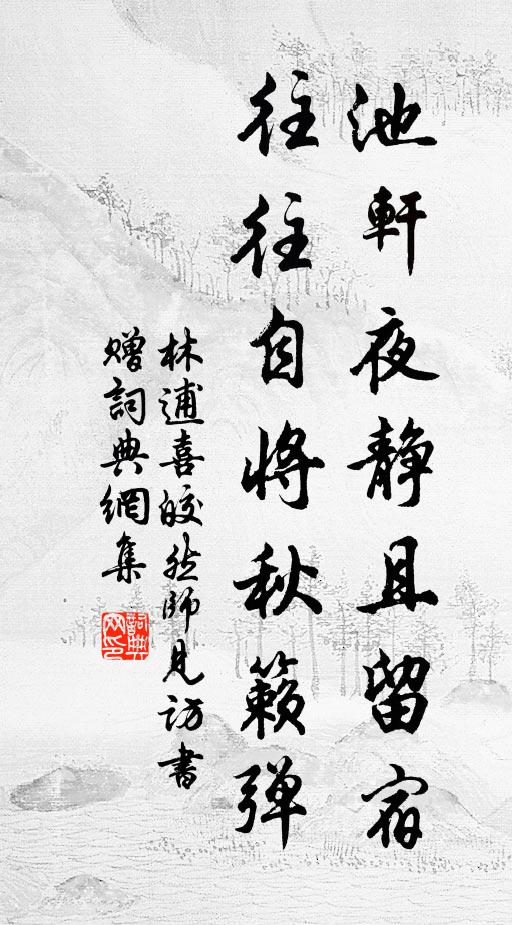 池軒夜静且留宿
往往自將秋籟弹
林逋喜皎然師見訪書
贈詞典網集
詞典
网印